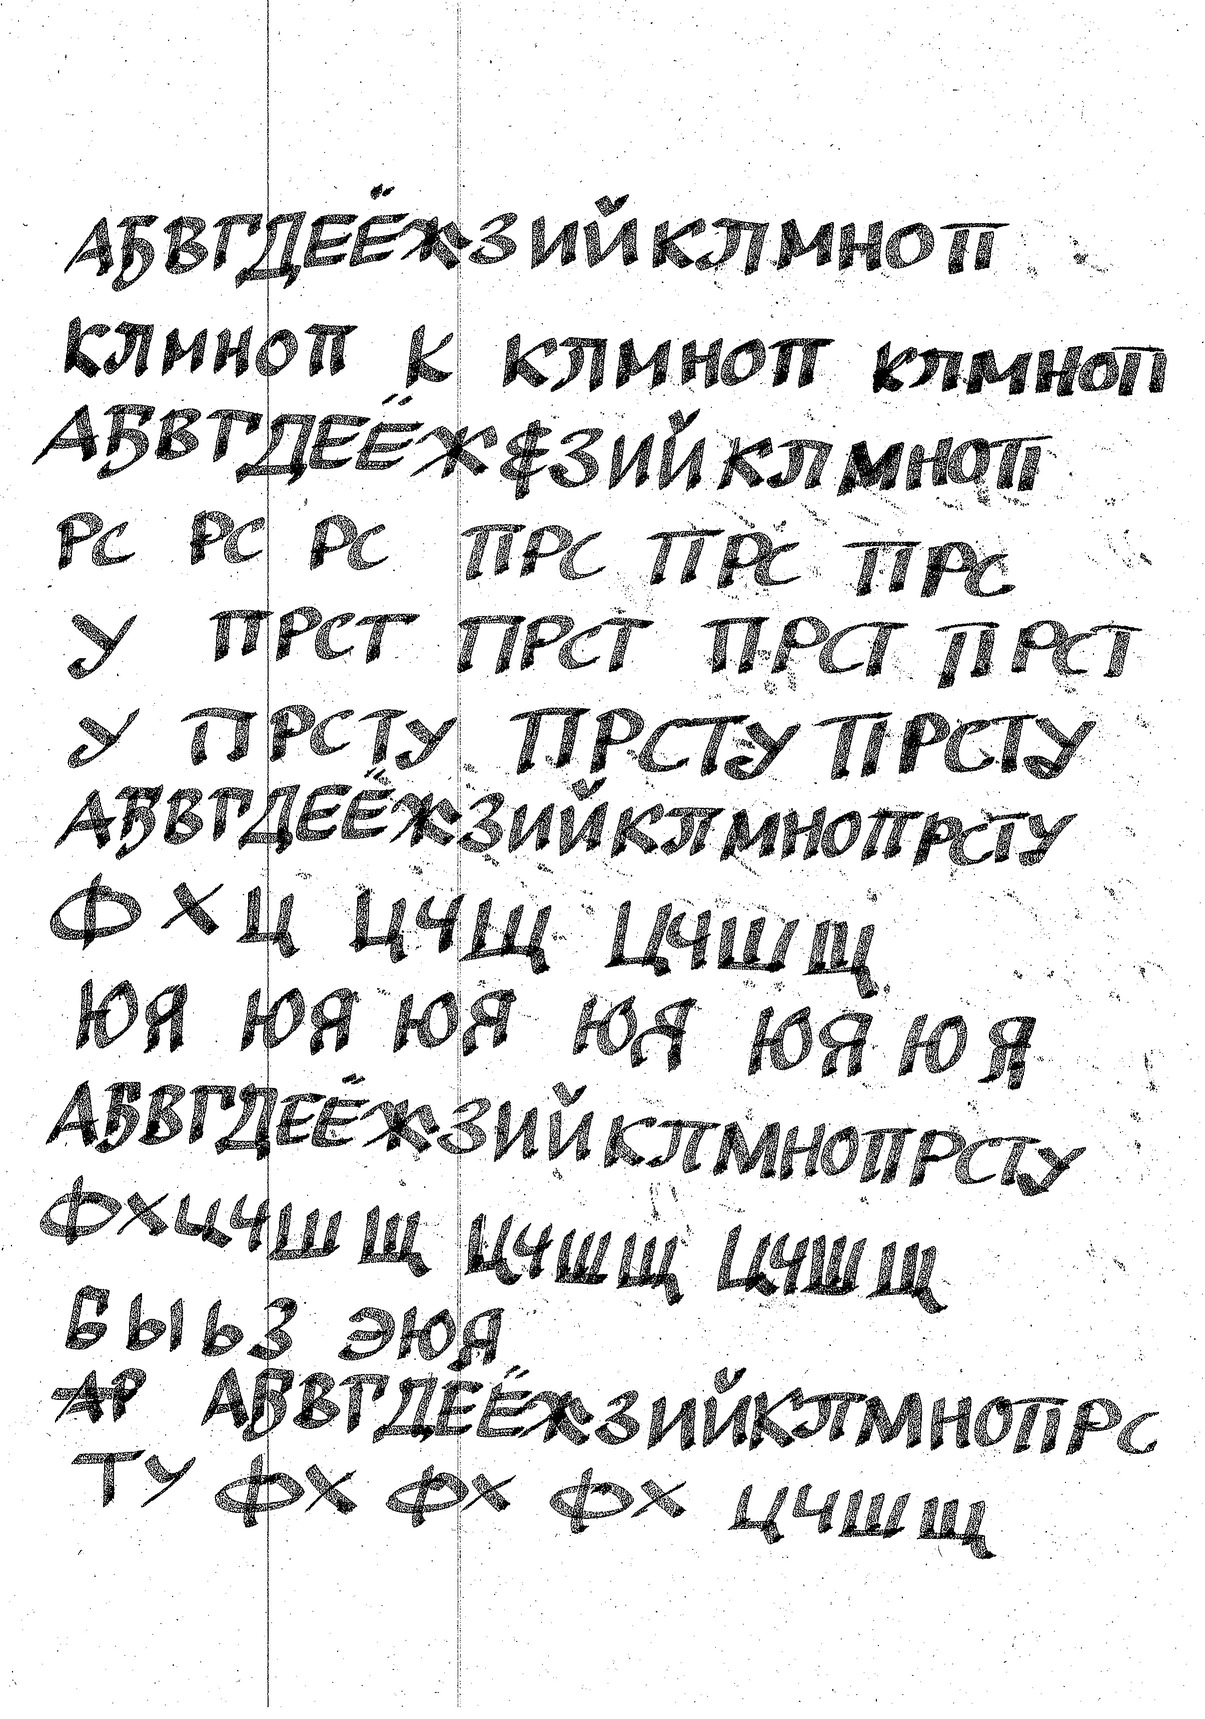 АБВГДЕЁЖЗИЙКЛМНОП
КЛМНОП К КЛМНОП КЛМНОП
АБВГДЕЁЖЗИЙКЛМНОП
РС РС РС ПРС ПРС ПРС
У ПРСТ ПРСТ ПРСТ ПРСТ
У ПРСТУ ПРСТУ ПРСТУ
АБВГДЕЁЖЗИЙКЛМНОПРСТУ
Ф Х Ц ЦЧЩ ЦЧШЩ
ЮЯ ЮЯ ЮЯ ЮЯ ЮЯ ЮЯ
АБВГДЕЁЖЗИЙКЛМНОПРСТУ
ФХЦЧШЩ ЦЧШЩ ЦЧШЩ
Б Ы Ь З ЭЮЯ
АР АБВГДЕЁЖЗИЙКЛМНОПРС
ТУ ФХ ФХ ФХ ЦЧШЩ